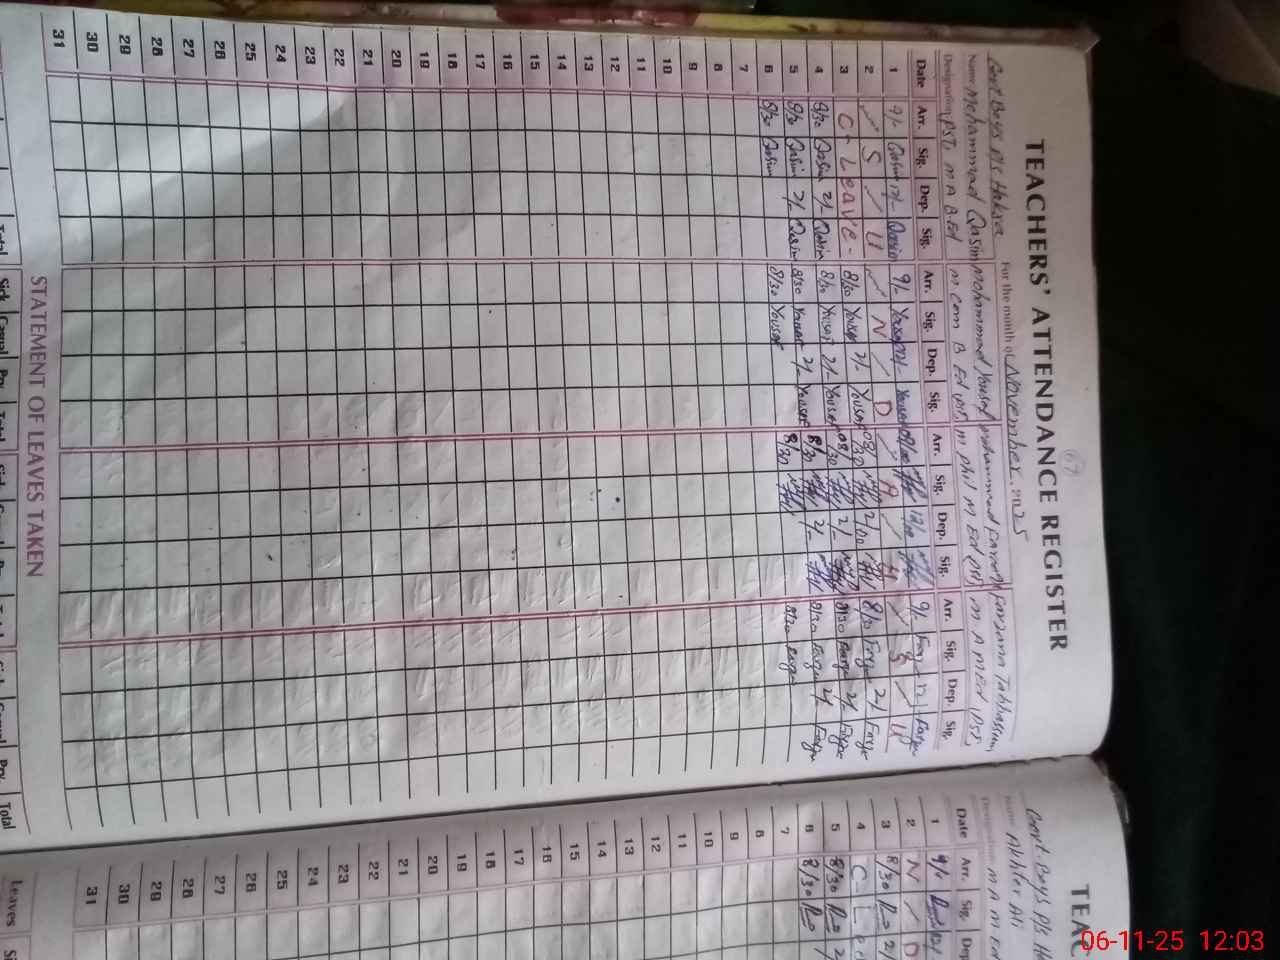 TEACHERS' ATTENDANCE REGISTER
67
Govt Boys P/S Haksra For the month of November. 2025
Name Mohammad Qasim Mohammad Yousaf Mohammad Farooq Farzana Tabbassum
Designation PST, M A B.Ed M.Com B Ed (PST) M phil M Ed (PST) M A M Ed (PST)
Date Arr. Sig. Dep. Sig. Arr. Sig. Dep. Sig. Arr. Sig. Dep. Sig. Arr. Sig. Dep. Sig.
1 9/- Qasim 12/- Qasim 9/- Yousaf 12/- Yousaf 12/00 9/-
2 S U N D A Y S U
3 C - Leave - 8/30 Yousaf 2/- Yousaf 08/30 2/00 8/30 2/-
4 8/30 Qasim 2/- Qasim 8/30 Yousaf 2/- Yousaf 08/30 2/- 8/30 2/-
5 8/30 Qasim 2/- Qasim 8/30 Yousaf 2/- Yousaf 8/30 2/- 8/30 2/-
6 8/30 Qasim 8/30 Yousaf 8/30 8/30
7
8
9
10
11
12
13
14
15
16
17
18
19
20
21
22
23
24
25
26
27
28
29
30
31
STATEMENT OF LEAVES TAKEN
Total Sick Casual Prv. Total
TEAC
Govt. Boys P/S Ha
Name Akhter Ali
Designation M A M Ed
Date Arr. Sig. Dep.
1 9/-
2 N D
3 8/30 2/
4 C - Le
5 8/30 2
6 8/30
7
8
9
10
11
12
13
14
15
16
17
18
19
20
21
22
23
24
25
26
27
28
29
30
31
Leaves
06-11-25 12:03